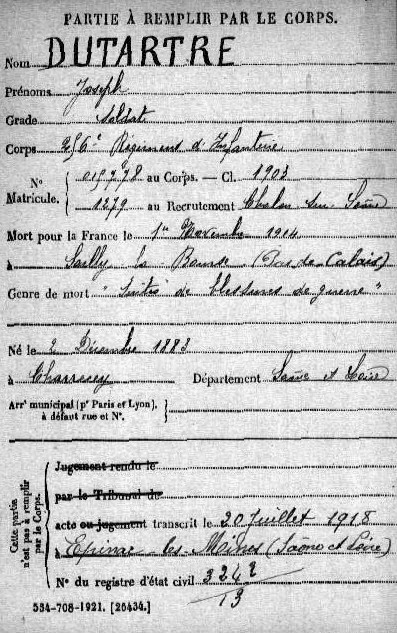 PARTIE À REMPLIR PAR LE CORPS.
Nom DUTARTRE
Prénoms Joseph
Grade Soldat
Corps 256e Régiment d'Infanterie
No Matricule. 019778 au Corps. — Cl. 1903
1279 au Recrutement Chalon sur Saône
Mort pour la France le 1er Novembre 1914
à Sailly la Bourse (Pas de Calais)
Genre de mort "Suites de blessures de guerre"
Né le 2 Décembre 1883
à Charrecey Département Saône et Loire
Arrt municipal (pr Paris et Lyon), à défaut rue et No.
Cette partie n'est pas à remplir par le Corps.
Jugement rendu le
par le Tribunal de
acte ou jugement transcrit le 20 Juillet 1918
à Epinac les Mines (Saône et Loire)
No du registre d'état civil 3242/13
534-708-1921. [26434.]